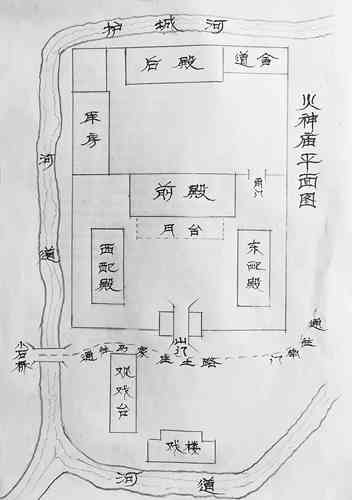 护城河
后殿
道舍
火神庙平面图
库房
前殿
河道
月台
西配殿
东配殿
山门
小石桥
通往马家
土路
通往
观戏台
戏楼
河道